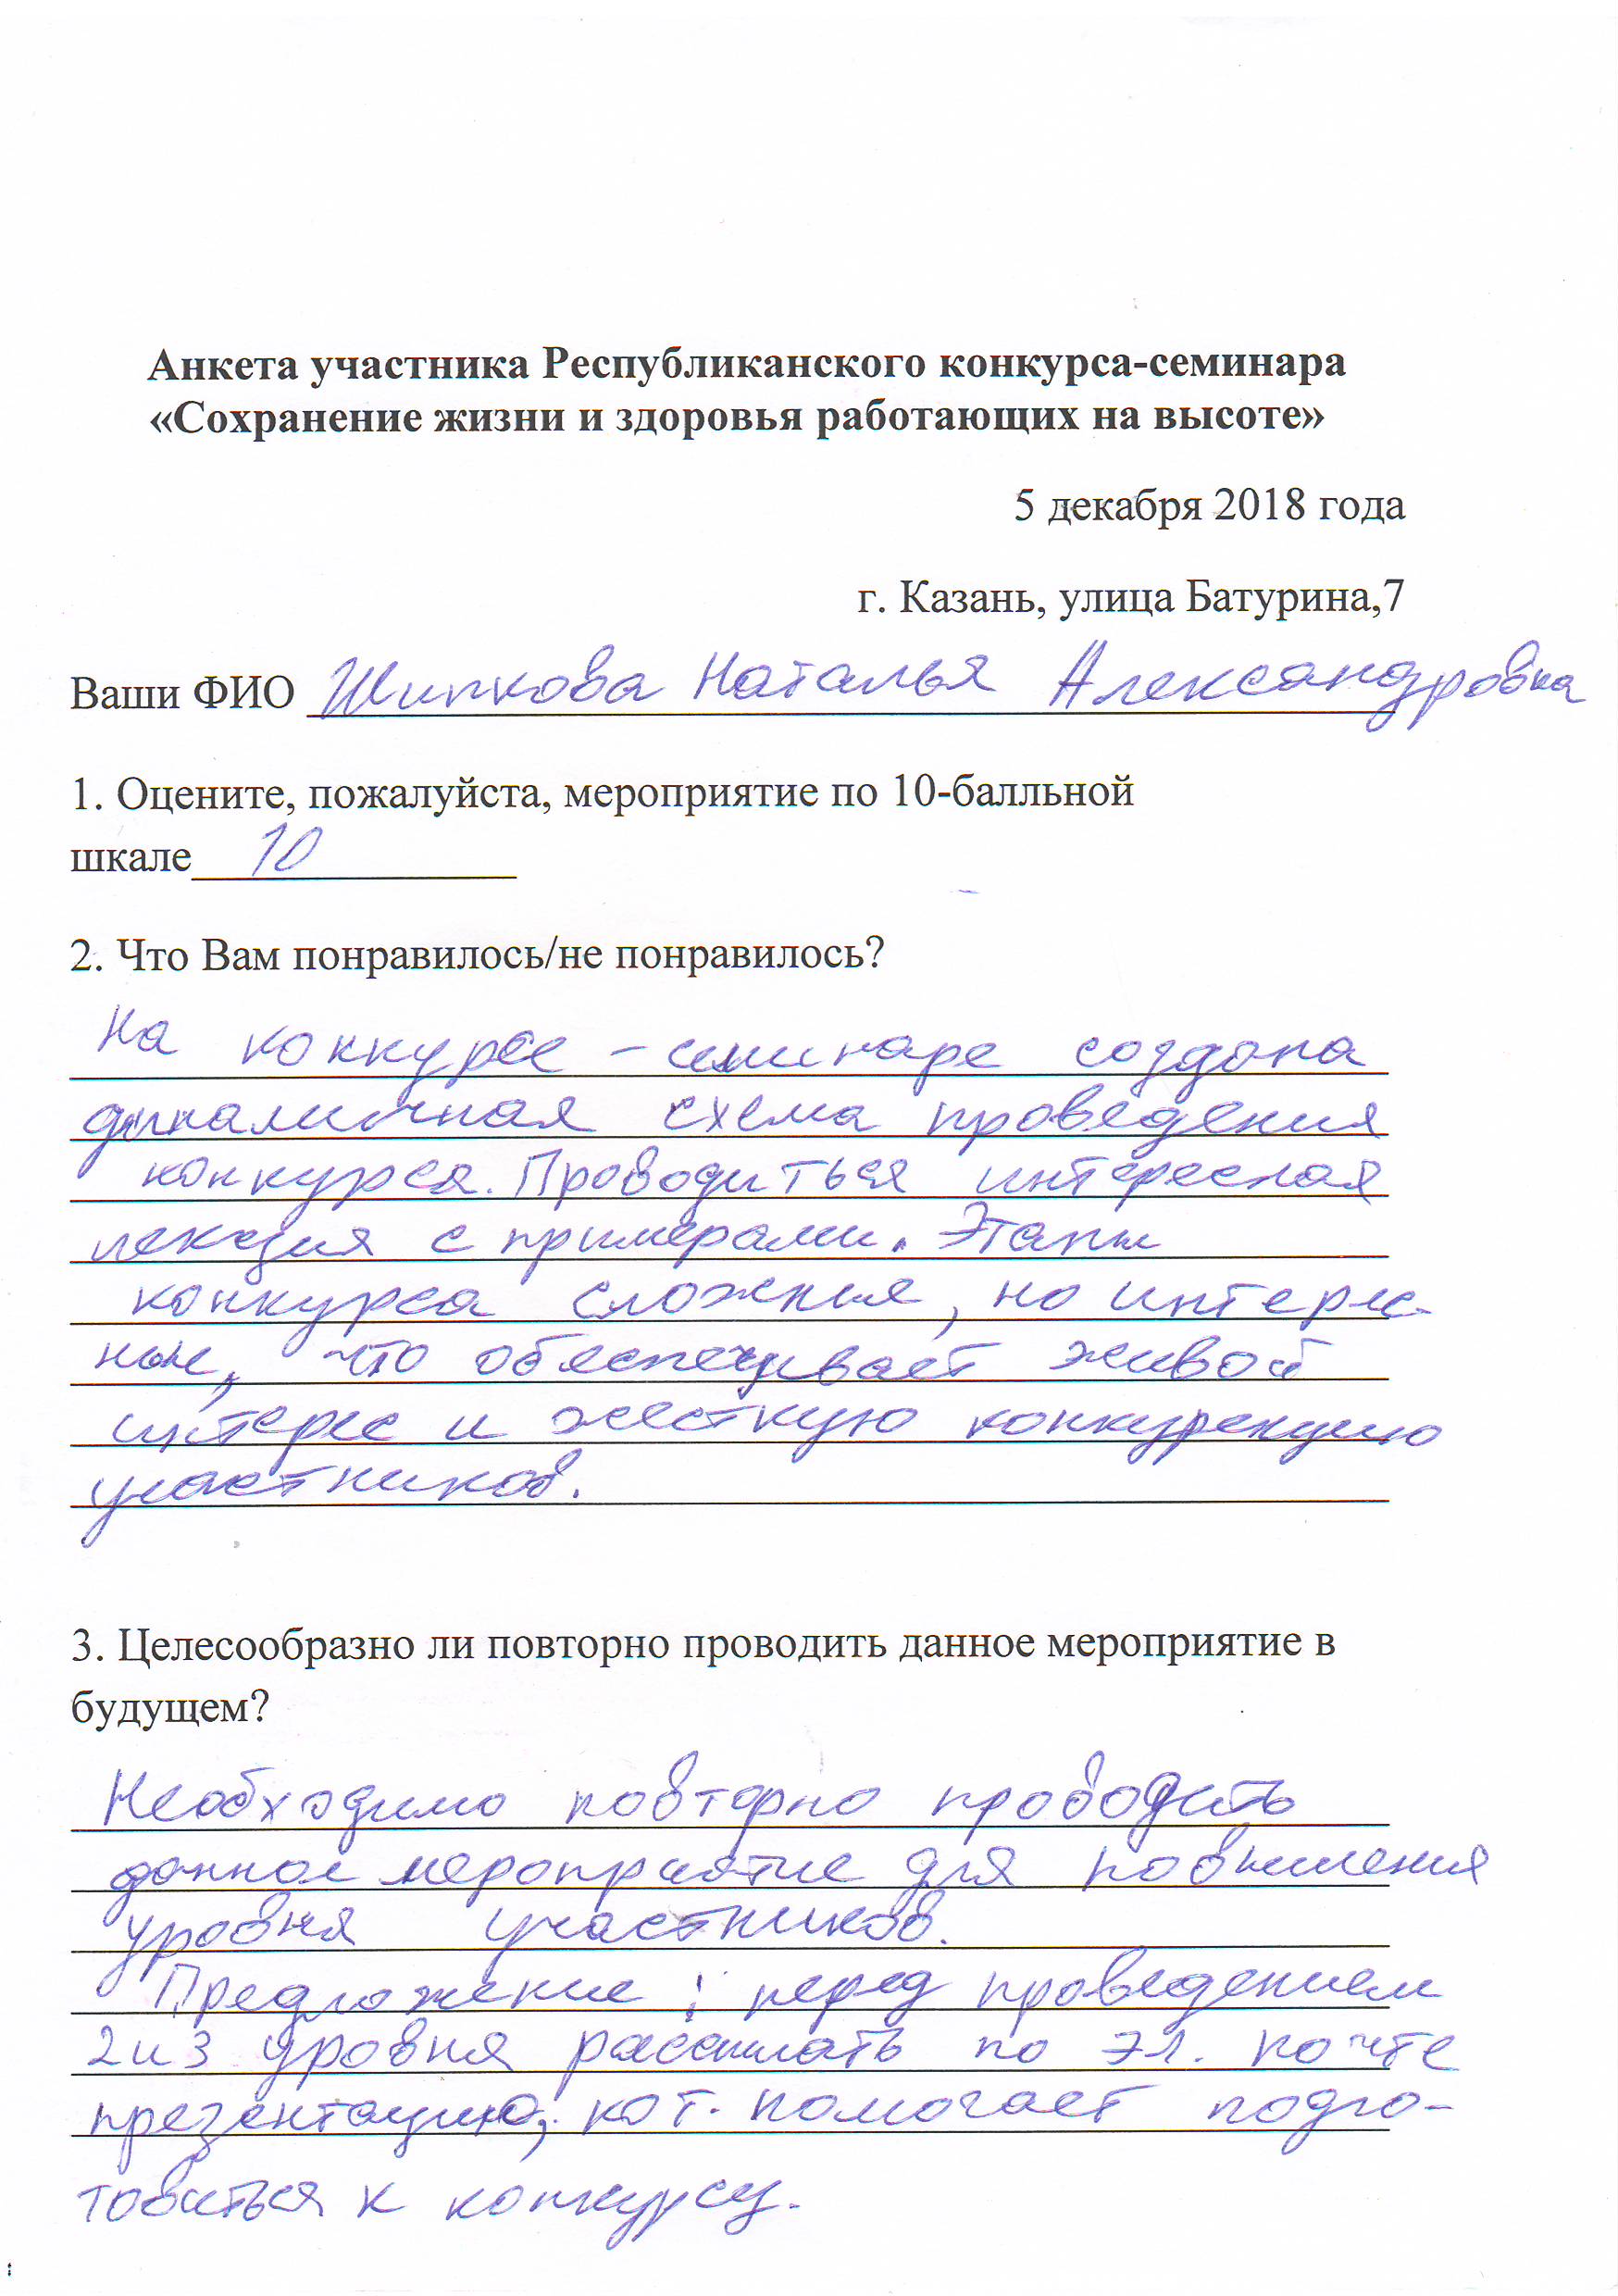 Анкета участника Республиканского конкурса-семинара
«Сохранение жизни и здоровья работающих на высоте»
5 декабря 2018 года
г. Казань, улица Батурина,7
Ваши ФИО Шипкова Наталья Александровна
1. Оцените, пожалуйста, мероприятие по 10-балльной
шкале 10
2. Что Вам понравилось/не понравилось?
На конкурсе - семинаре создана
динамичная схема проведения
конкурса. Проводиться интересная
лекция с примерами. Этапы
конкурса сложные, но интерес-
ные, что обеспечивает живой
интерес и жесткую конкуренцию
участников.
3. Целесообразно ли повторно проводить данное мероприятие в
будущем?
Необходимо повторно проводить
данное мероприятие для повышения
уровня участников.
Предложение: перед проведением
2 и 3 уровня рассылать по эл. почте
презентацию, кот. помогает подго-
товиться к конкурсу.